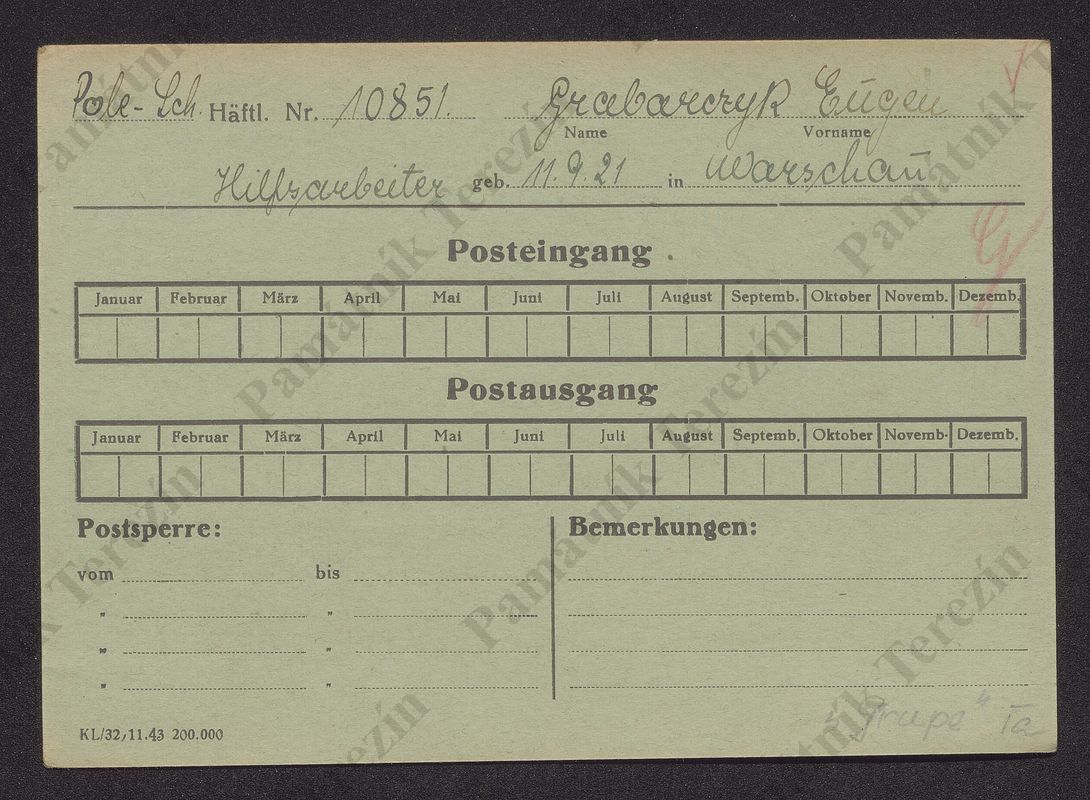 Pole-Sch. Häftl. Nr. 10851. Grabarczyk Eugen
Name Vorname
Hilfsarbeiter geb. 11.9.21 in Warschau
Posteingang
Januar Februar März April Mai Juni Juli August Septemb. Oktober Novemb. Dezemb.
Postausgang
Januar Februar März April Mai Juni Juli August Septemb. Oktober Novemb. Dezemb.
Postsperre: Bemerkungen:
vom bis
" "
" "
" "
"Grupa" Ia
KL/32,11.43 200.000
Památník Terezín